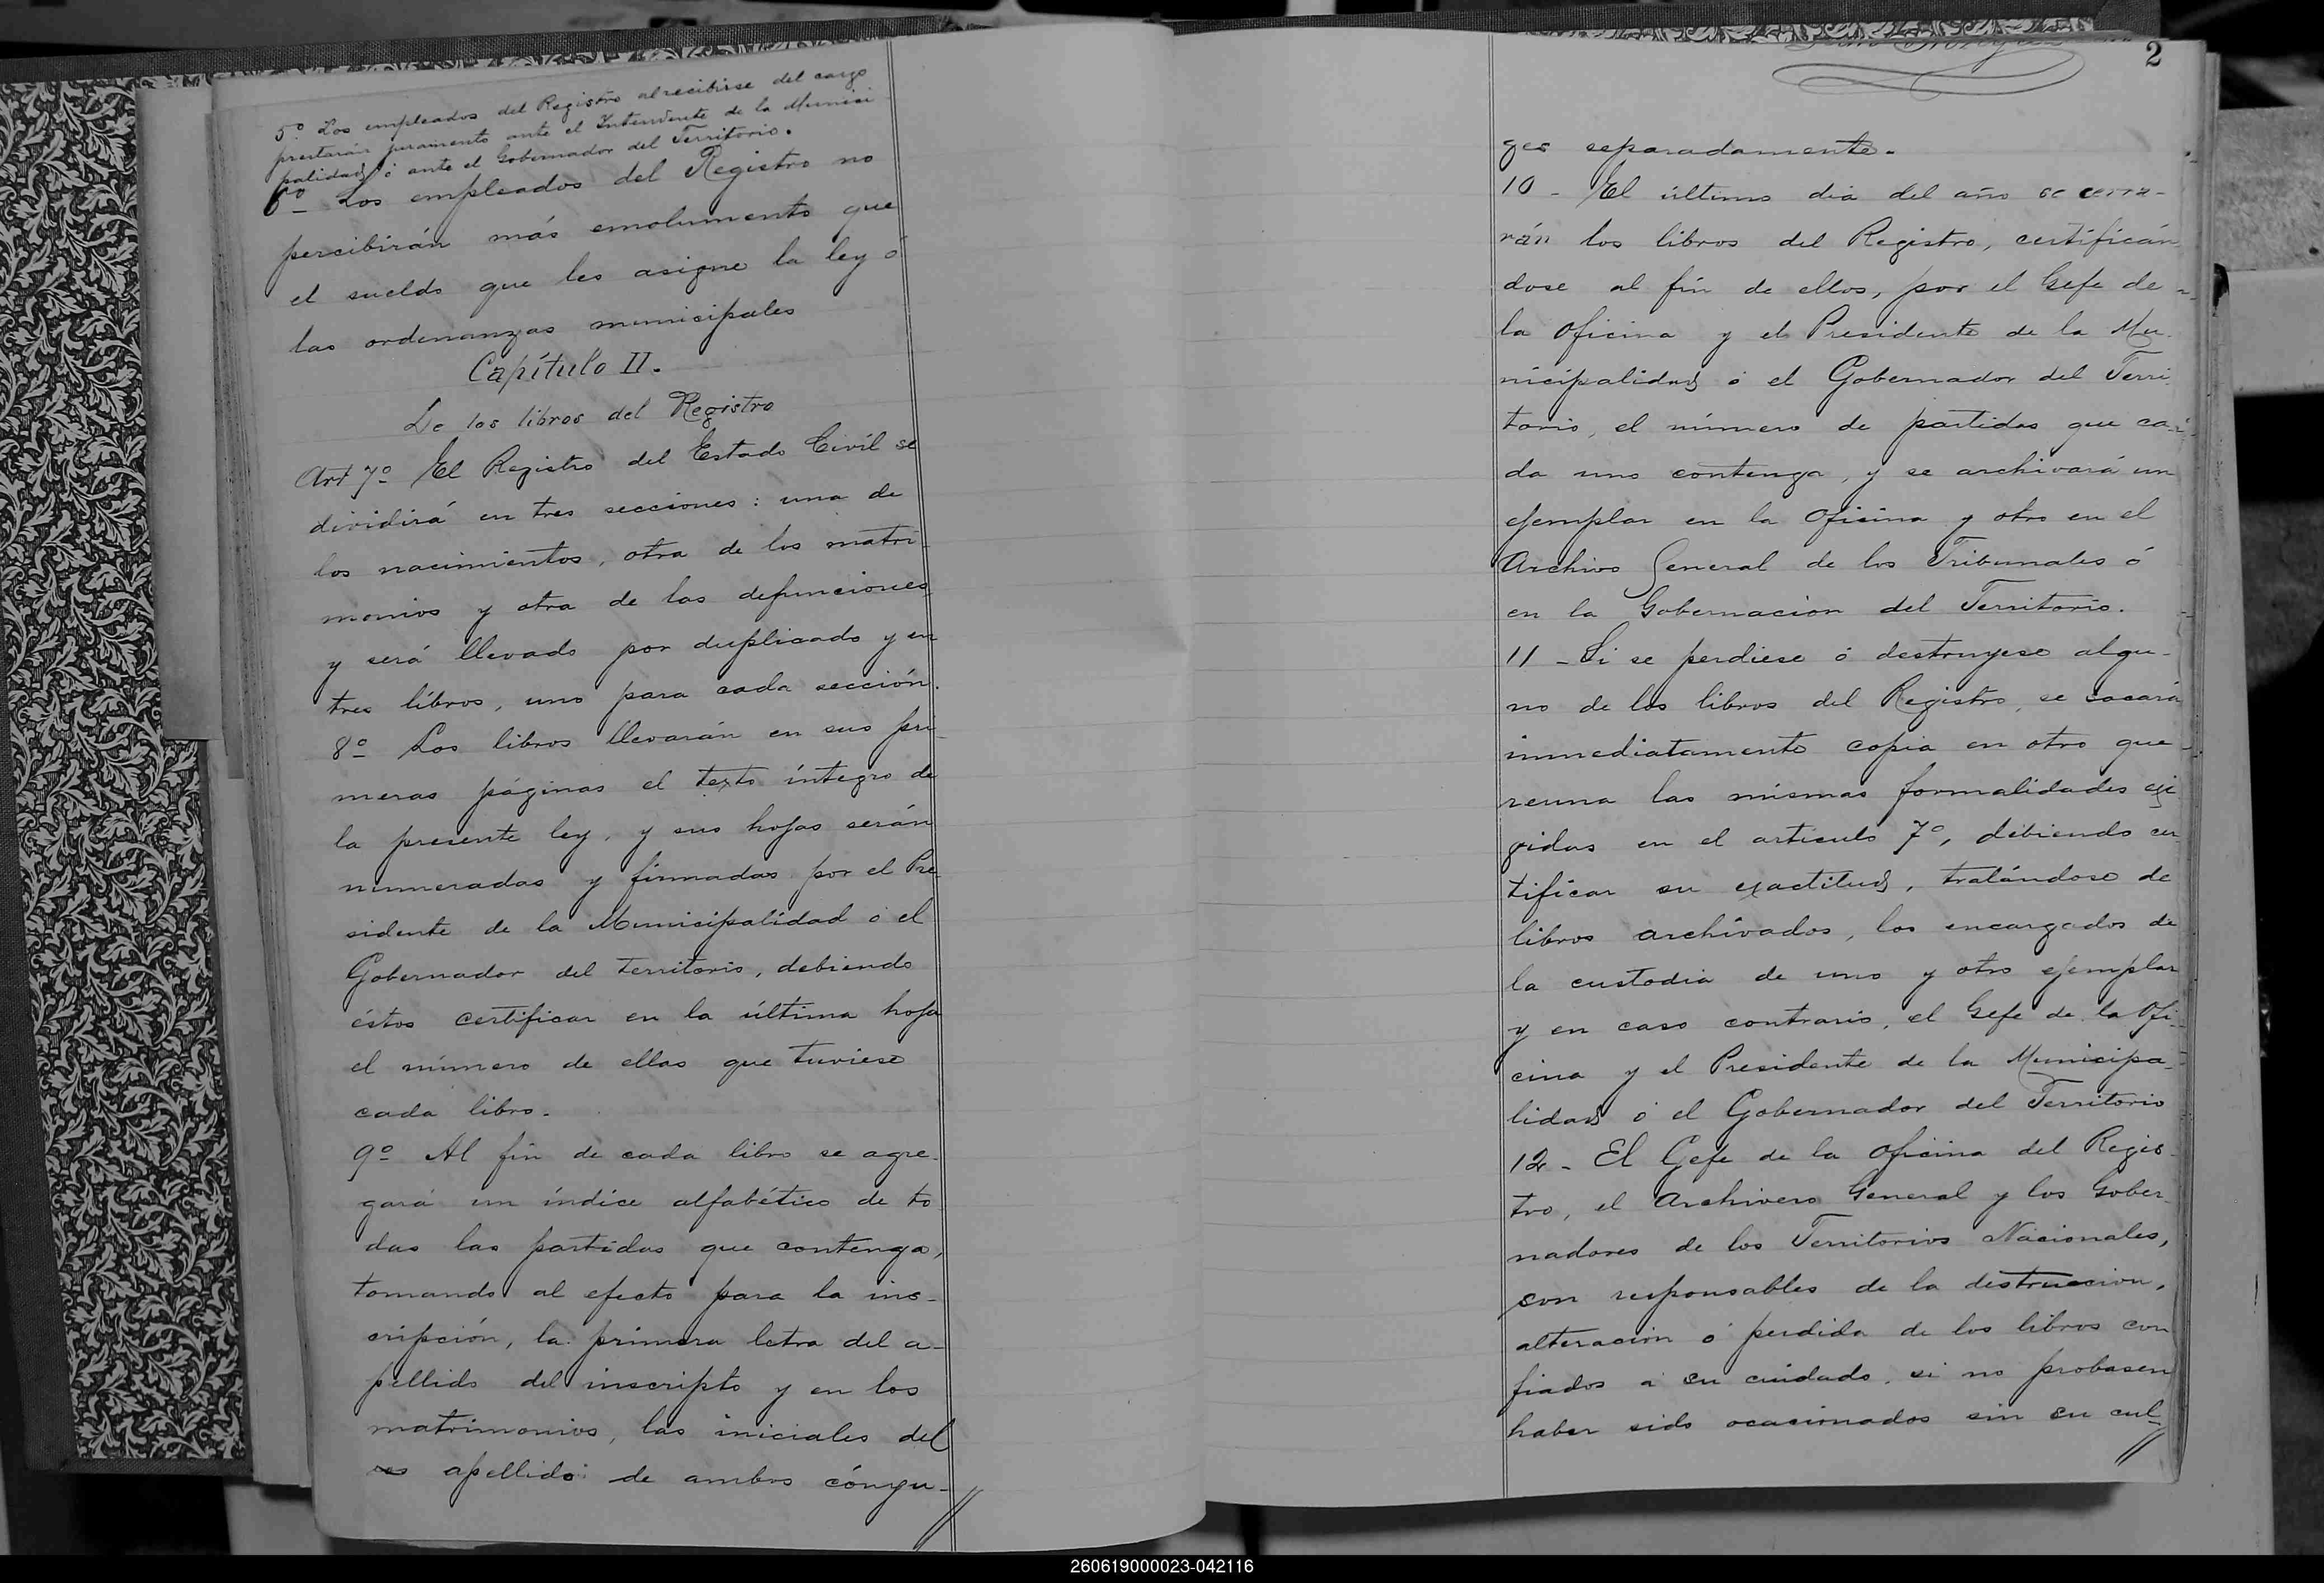 5º Los empleados del Registro al recibirse del cargo
prestarán juramento ante el Intendente de la Munici
palidad ó ante el Gobernador del Territorio.
6º Los empleados del Registro no
percibirán más emolumento que
el sueldo que les asigne la ley ó
las ordenanzas municipales
Capítulo II.
De los libros del Registro
Art 7º El Registro del Estado Civil se
dividirá en tres secciones: una de
los nacimientos, otra de los matri-
monios y otra de las defunciones
y será llevado por duplicado y en
tres libros, uno para cada sección.
8º Los libros llevarán en sus pri-
meras páginas el texto íntegro de
la presente ley, y sus hojas serán
numeradas y firmadas por el Pre
sidente de la Municipalidad ó el
Gobernador del territorio, debiendo
éstos certificar en la última hoja
el número de ellas que tuviese
cada libro.
9º Al fín de cada libro se agre-
gará un índice alfabético de to
das las partidas que contenga,
tomando al efecto para la ins-
cripción, la primera letra del a-
pellido del inscripto y en los
matrimonios, las iniciales del
apellido de ambos cónyu-
2
ges separadamente.
10 - El último dia del año se cerra-
rán los libros del Registro, certificán
dose al fín de ellos, por el Gefe de
la Oficina y el Presidente de la Mu-
nicipalidad ó el Gobernador del Terri
torio, el número de partidas que ca-
da uno contenga, y se archivará un
ejemplar en la Oficina y otro en el
Archivo General de los Tribunales ó
en la Gobernacion del Territorio.
11 - Si se perdiese ó destruyese algu-
no de los libros del Registro, se sacará
inmediatamente copia en otro que
reuna las mismas formalidades exi
gidas en el artículo 7º, debiendo cer
tificar su exactitud, tratándose de
libros archivados, los encargados de
la custodia de uno y otro ejemplar
y en caso contrario, el Gefe de la Ofi-
cina y el Presidente de la Municipa-
lidad ó el Gobernador del Territorio
12 - El Gefe de la Oficina del Regis-
tro, el Archivero General y los Gober-
nadores de los Territorios Nacionales,
son responsables de la destruccion,
alteración ó perdida de los libros con
fiados a su cuidado, si no probasen
haber sido ocasionados sin su cul-
260619000023-042116